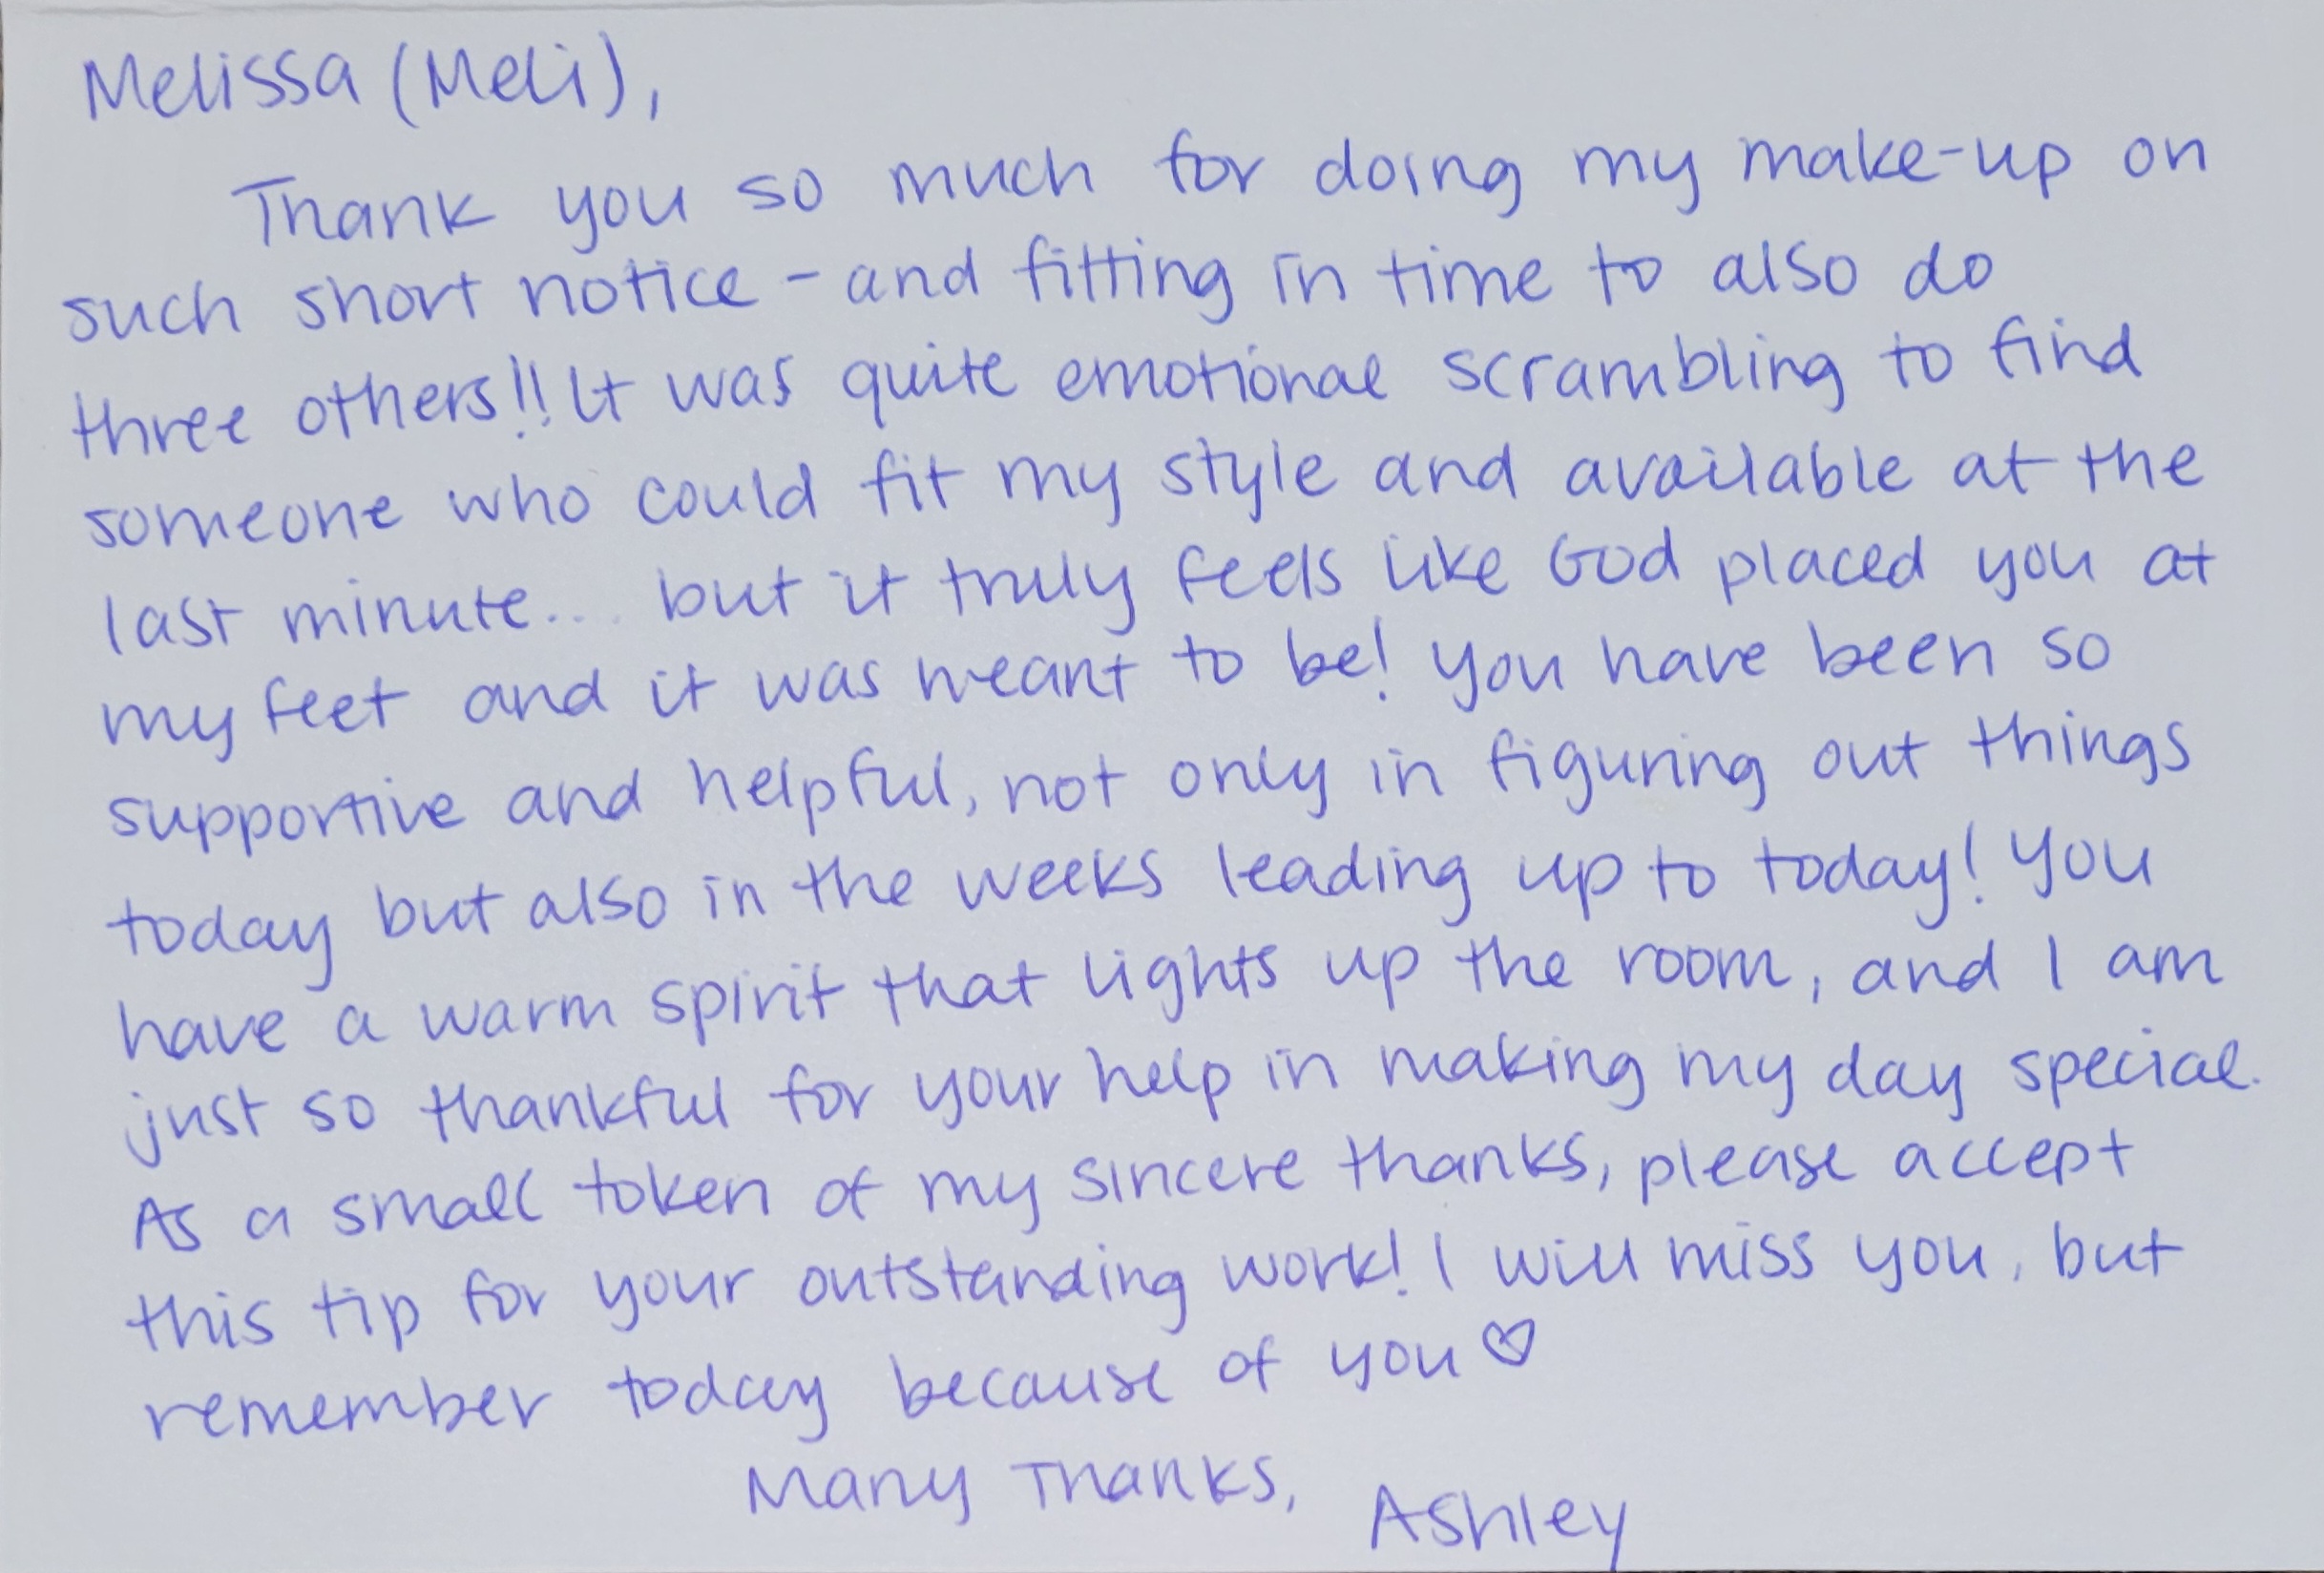 Melissa (Meli),
Thank you so much for doing my make-up on
such short notice - and fitting in time to also do
three others!! It was quite emotional scrambling to find
someone who could fit my style and available at the
last minute... but it truly feels like God placed you at
my feet and it was meant to be! You have been so
supportive and helpful, not only in figuring out things
today but also in the weeks leading up to today! You
have a warm spirit that lights up the room, and I am
just so thankful for your help in making my day special.
As a small token of my sincere thanks, please accept
this tip for your outstanding work! I will miss you, but
remember today because of you ♡
Many Thanks, Ashley